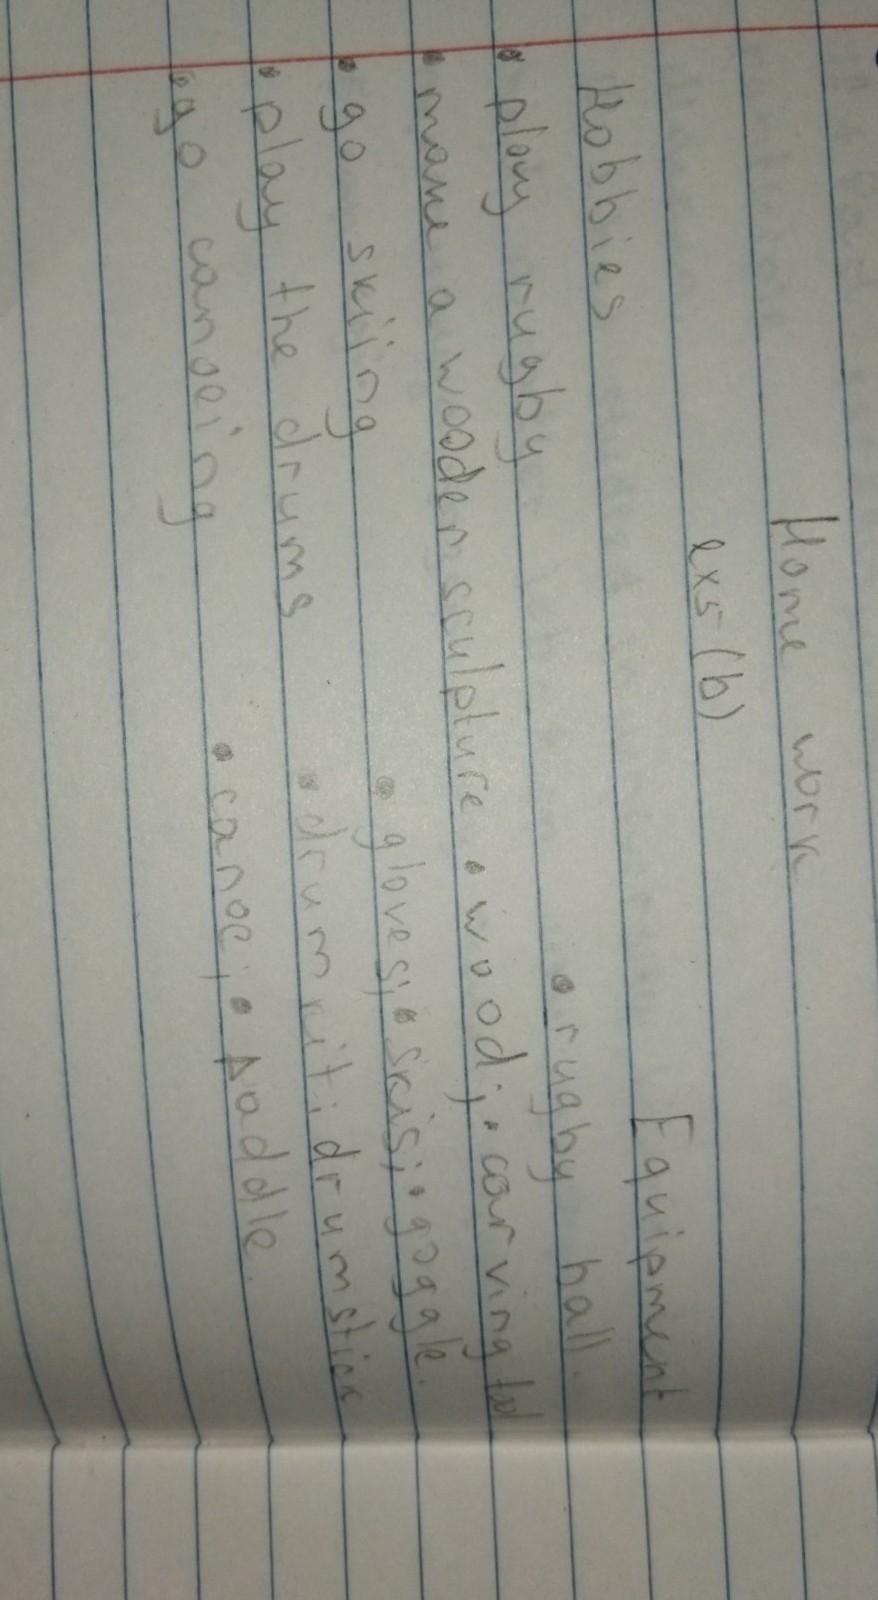 Home work
ex5 (b)
Hobbies Equipment
• play rugby • rugby hall.
• make a wooden sculpture • wood; • carving tool
• go skiing • gloves; • skis; • goggle.
• play the drums • drum kit; drumstick
• go canoeing • canoe; • paddle.